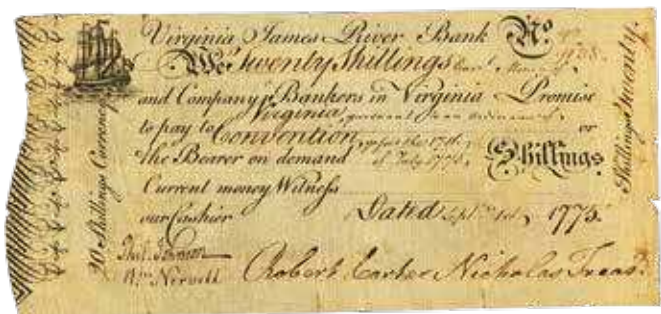 Virginia James River Bank No.
We Twenty Shillings
and Company, Bankers in Virginia Promise
Virginia,
to pay to Convention, or
the Bearer on demand of July 1775, Shillings
Current money Witness
our Cashier Dated Sept. 1st, 1775.
Phil. Johnson
Robert Carter Nicholas Treas.
20 Shillings Currency
Shillings Twenty.